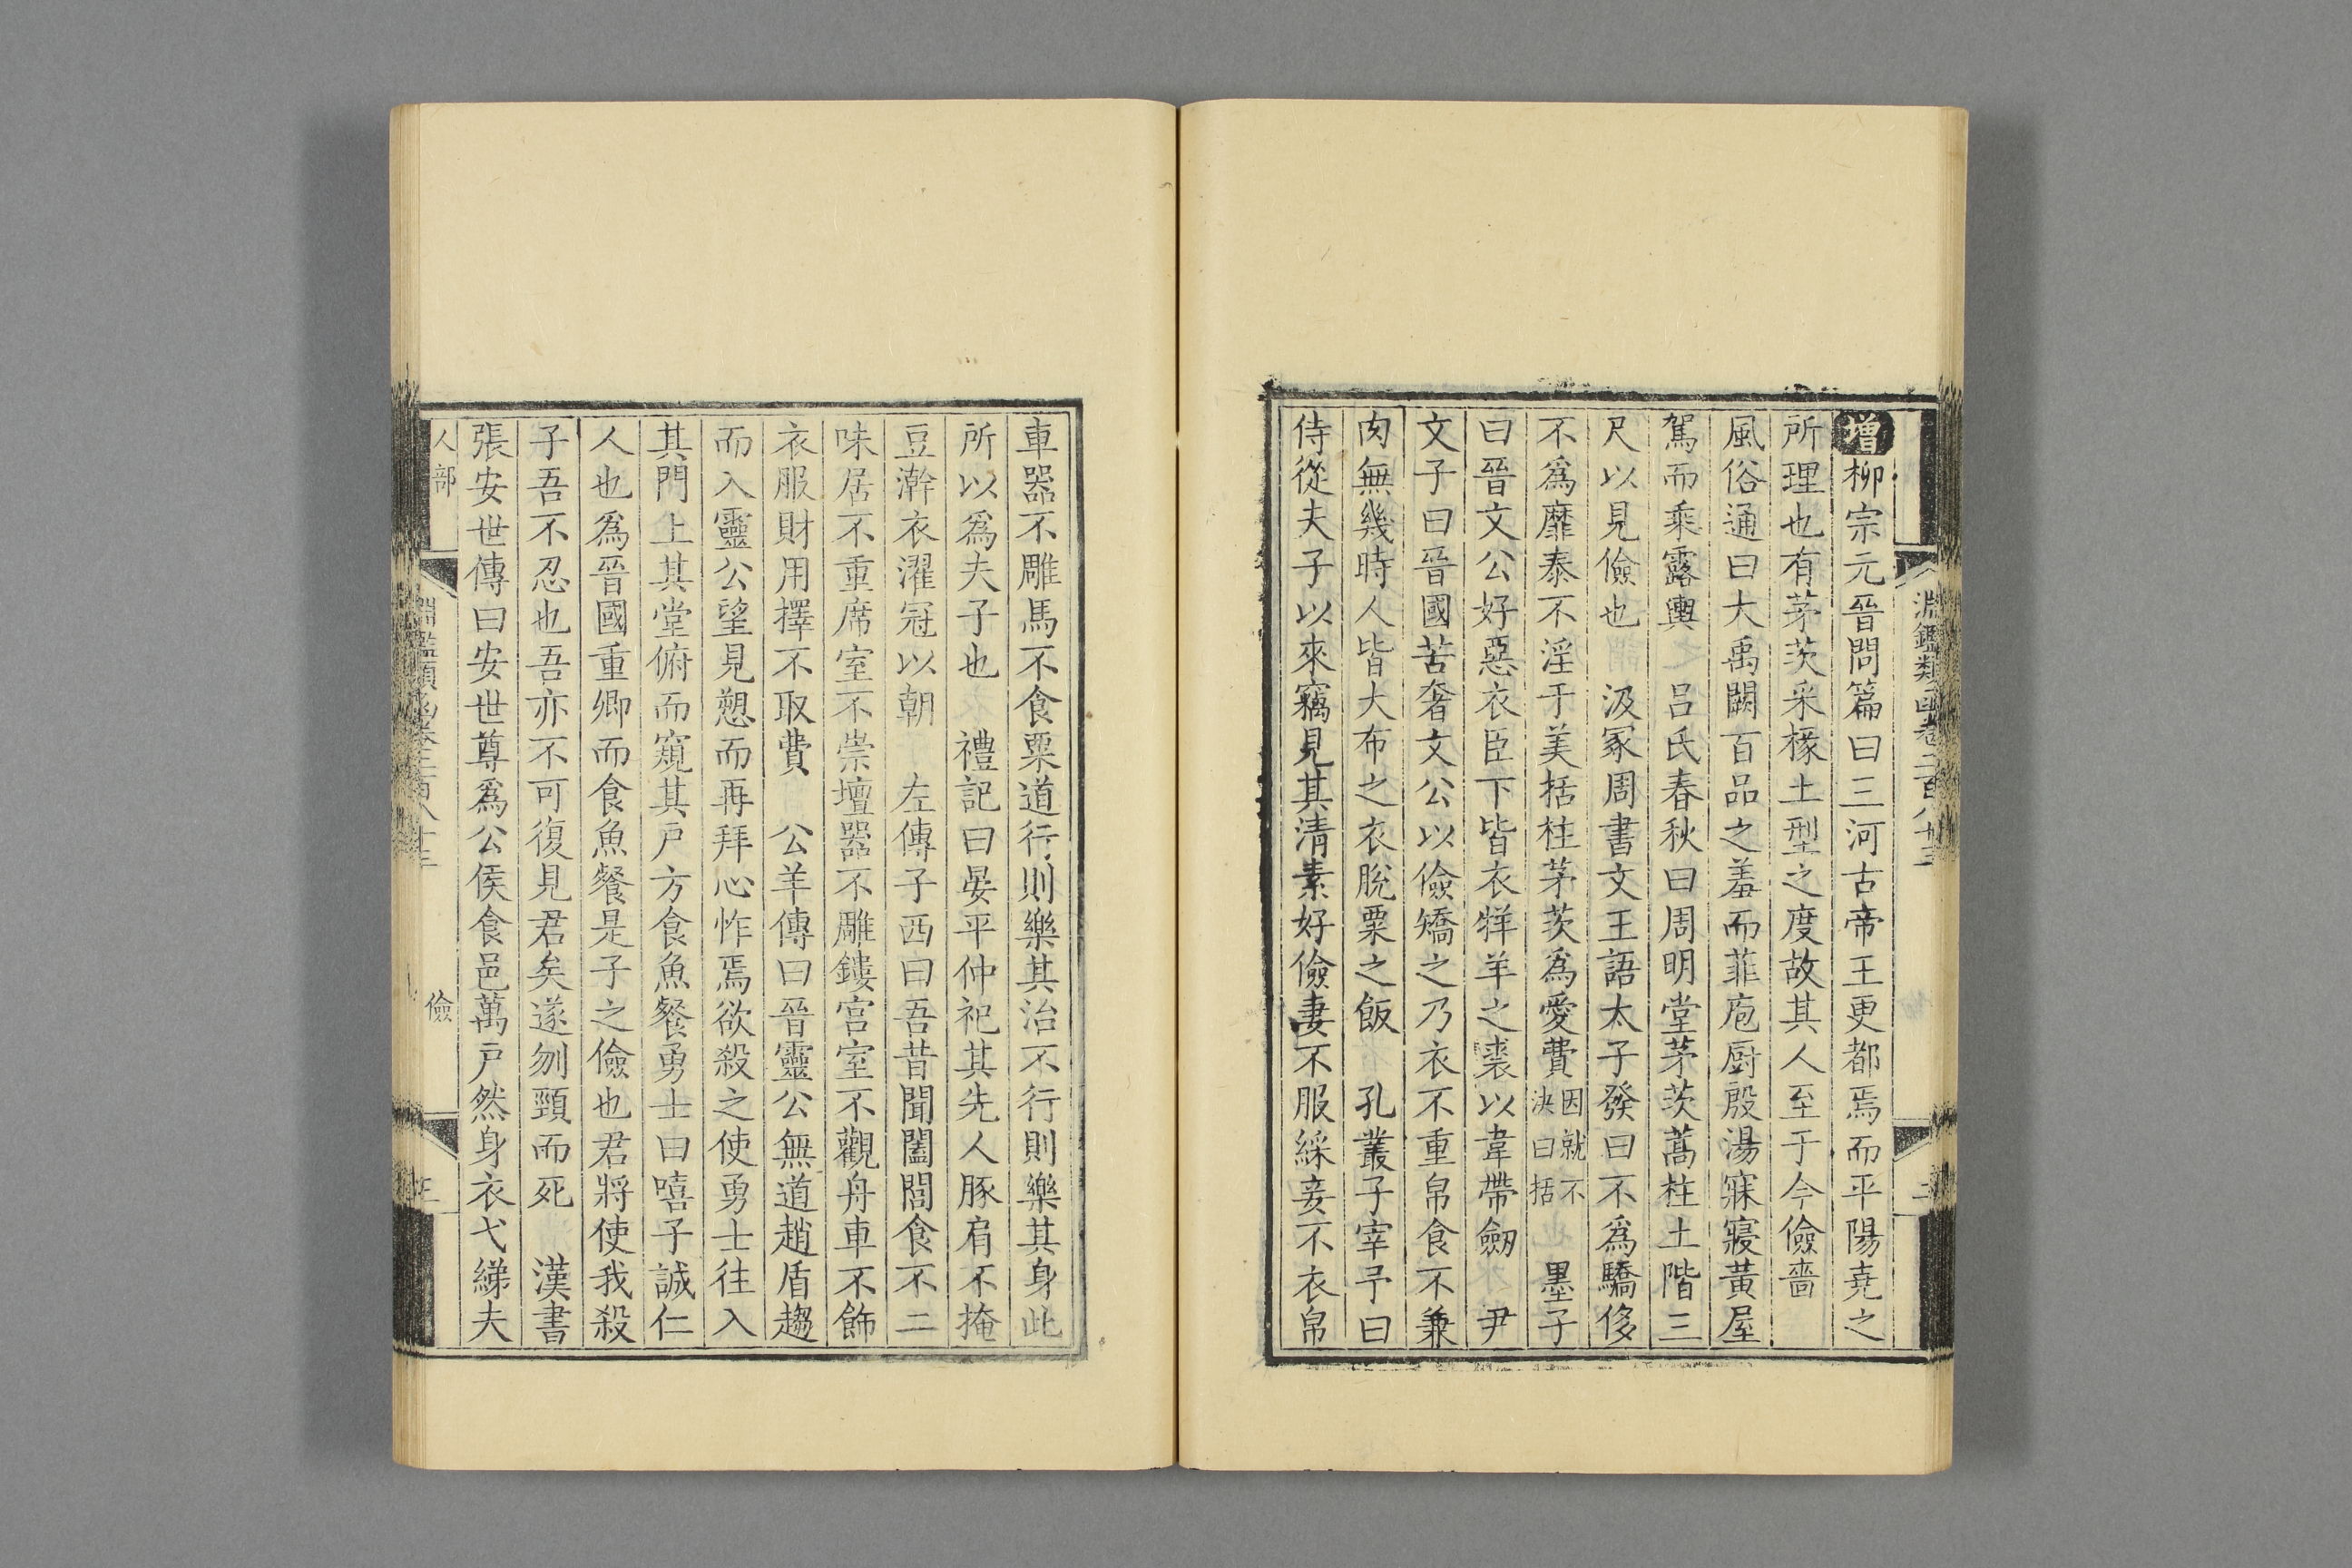 淵鑑類函卷二百八十三
二
增柳宗元晉問篇曰三河古帝王更都焉而平陽堯之
所理也有茅茨采椽土型之度故其人至于今儉嗇
風俗通曰大禹闕百品之羞而菲庖厨殷湯寐寢黃屋
駕而乘露輿　呂氏春秋曰周明堂茅茨蒿柱土階三
尺以見儉也　汲冢周書文王語太子發曰不爲驕侈
不爲靡泰不淫于美括柱茅茨爲愛費因就不決曰括　墨子
曰晉文公好惡衣臣下皆衣牂羊之裘以韋帶劒　尹
文子曰晉國苦奢文公以儉矯之乃衣不重帛食不兼
肉無幾時人皆大布之衣脫粟之飯　孔叢子宰予曰
侍從夫子以來竊見其清素好儉妻不服綵妾不衣帛
車器不雕馬不食粟道行則樂其治不行則樂其身此
所以爲夫子也　禮記曰晏平仲祀其先人豚肩不掩
豆澣衣濯冠以朝　左傳子西曰吾昔聞闔閭食不二
味居不重席室不崇壇器不雕鏤宫室不觀舟車不飾
衣服財用擇不取費　公羊傳曰晉靈公無道趙盾趨
而入靈公望見愬而再拜心怍焉欲殺之使勇士往入
其門上其堂俯而窺其戶方食魚餐勇士曰嘻子誠仁
人也爲晉國重卿而食魚餐是子之儉也君將使我殺
子吾不忍也吾亦不可復見君矣遂刎頸而死　漢書
張安世傳曰安世尊爲公侯食邑萬戶然身衣弋綈夫
人部　淵鑑類函卷二百八十三　儉